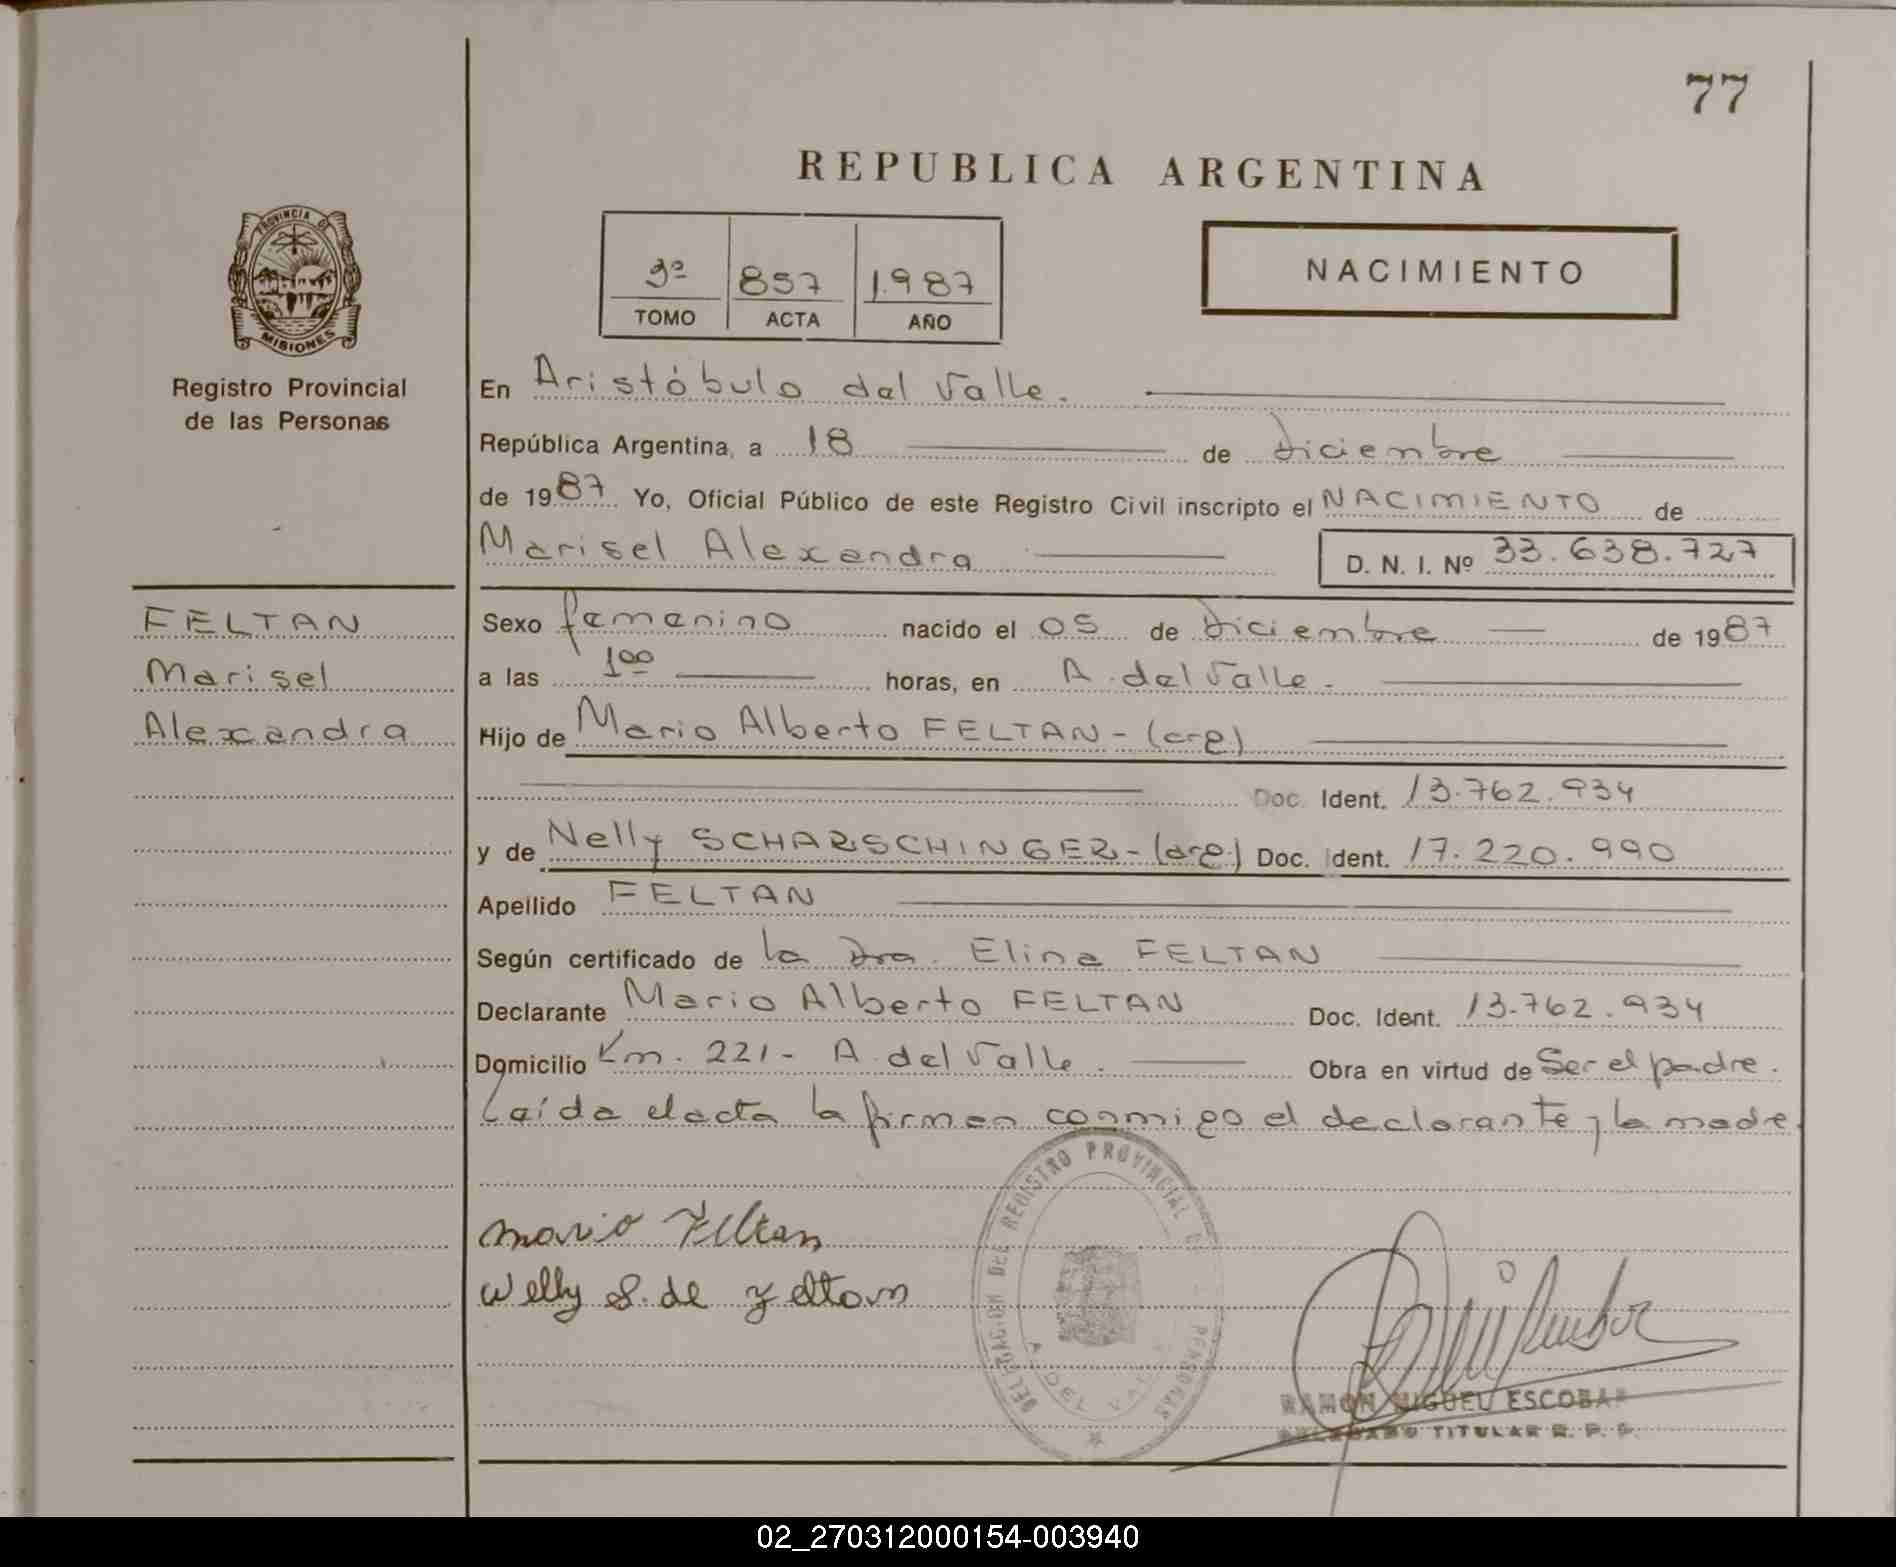 77
REPUBLICA ARGENTINA
PROVINCIA DE
MISIONES
Registro Provincial
de las Personas
3º 857 1.987
TOMO ACTA AÑO
NACIMIENTO
En Aristóbulo del Valle.
República Argentina, a 18 de diciembre
de 1987 Yo, Oficial Público de este Registro Civil inscripto el NACIMIENTO de
Marisel Alexandra D. N. I. Nº 33.638.727
FELTAN
Marisel
Alexandra
Sexo femenino nacido el 05 de diciembre de 1987
a las 1⁰⁰ horas, en A. del Valle.
Hijo de Mario Alberto FELTAN - (arg)
Doc. Ident. 13.762.934
y de Nelly SCHARSCHINGER - (arg.) Doc. Ident. 17.220.990
Apellido FELTAN
Según certificado de la Dra. Elina FELTAN
Declarante Mario Alberto FELTAN Doc. Ident. 13.762.934
Domicilio Km. 221 - A. del Valle. Obra en virtud de Ser el padre.
Leída el acta la firman conmigo el declarante y la madre.
Mario Feltan
Nelly S. de Feltan
DELEGACION DEL REGISTRO PROVINCIAL PERSONAS
A. DEL VALLE
RAMON MIGUEL ESCOBAR
DELEGADO TITULAR R. P. P.
02_270312000154-003940